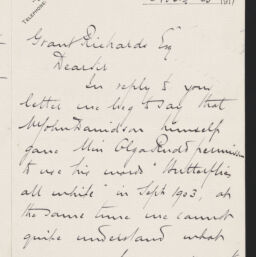 TELEPHONE
1911
Grant Richards Esq
Dear Sir
In reply to your
letter we beg to say that
Mr John Davidson himself
gave Miss Olga Rudd permission
to use his words "Butterflies
all white" in Sept 1903, at
the same time we cannot
quite understand what